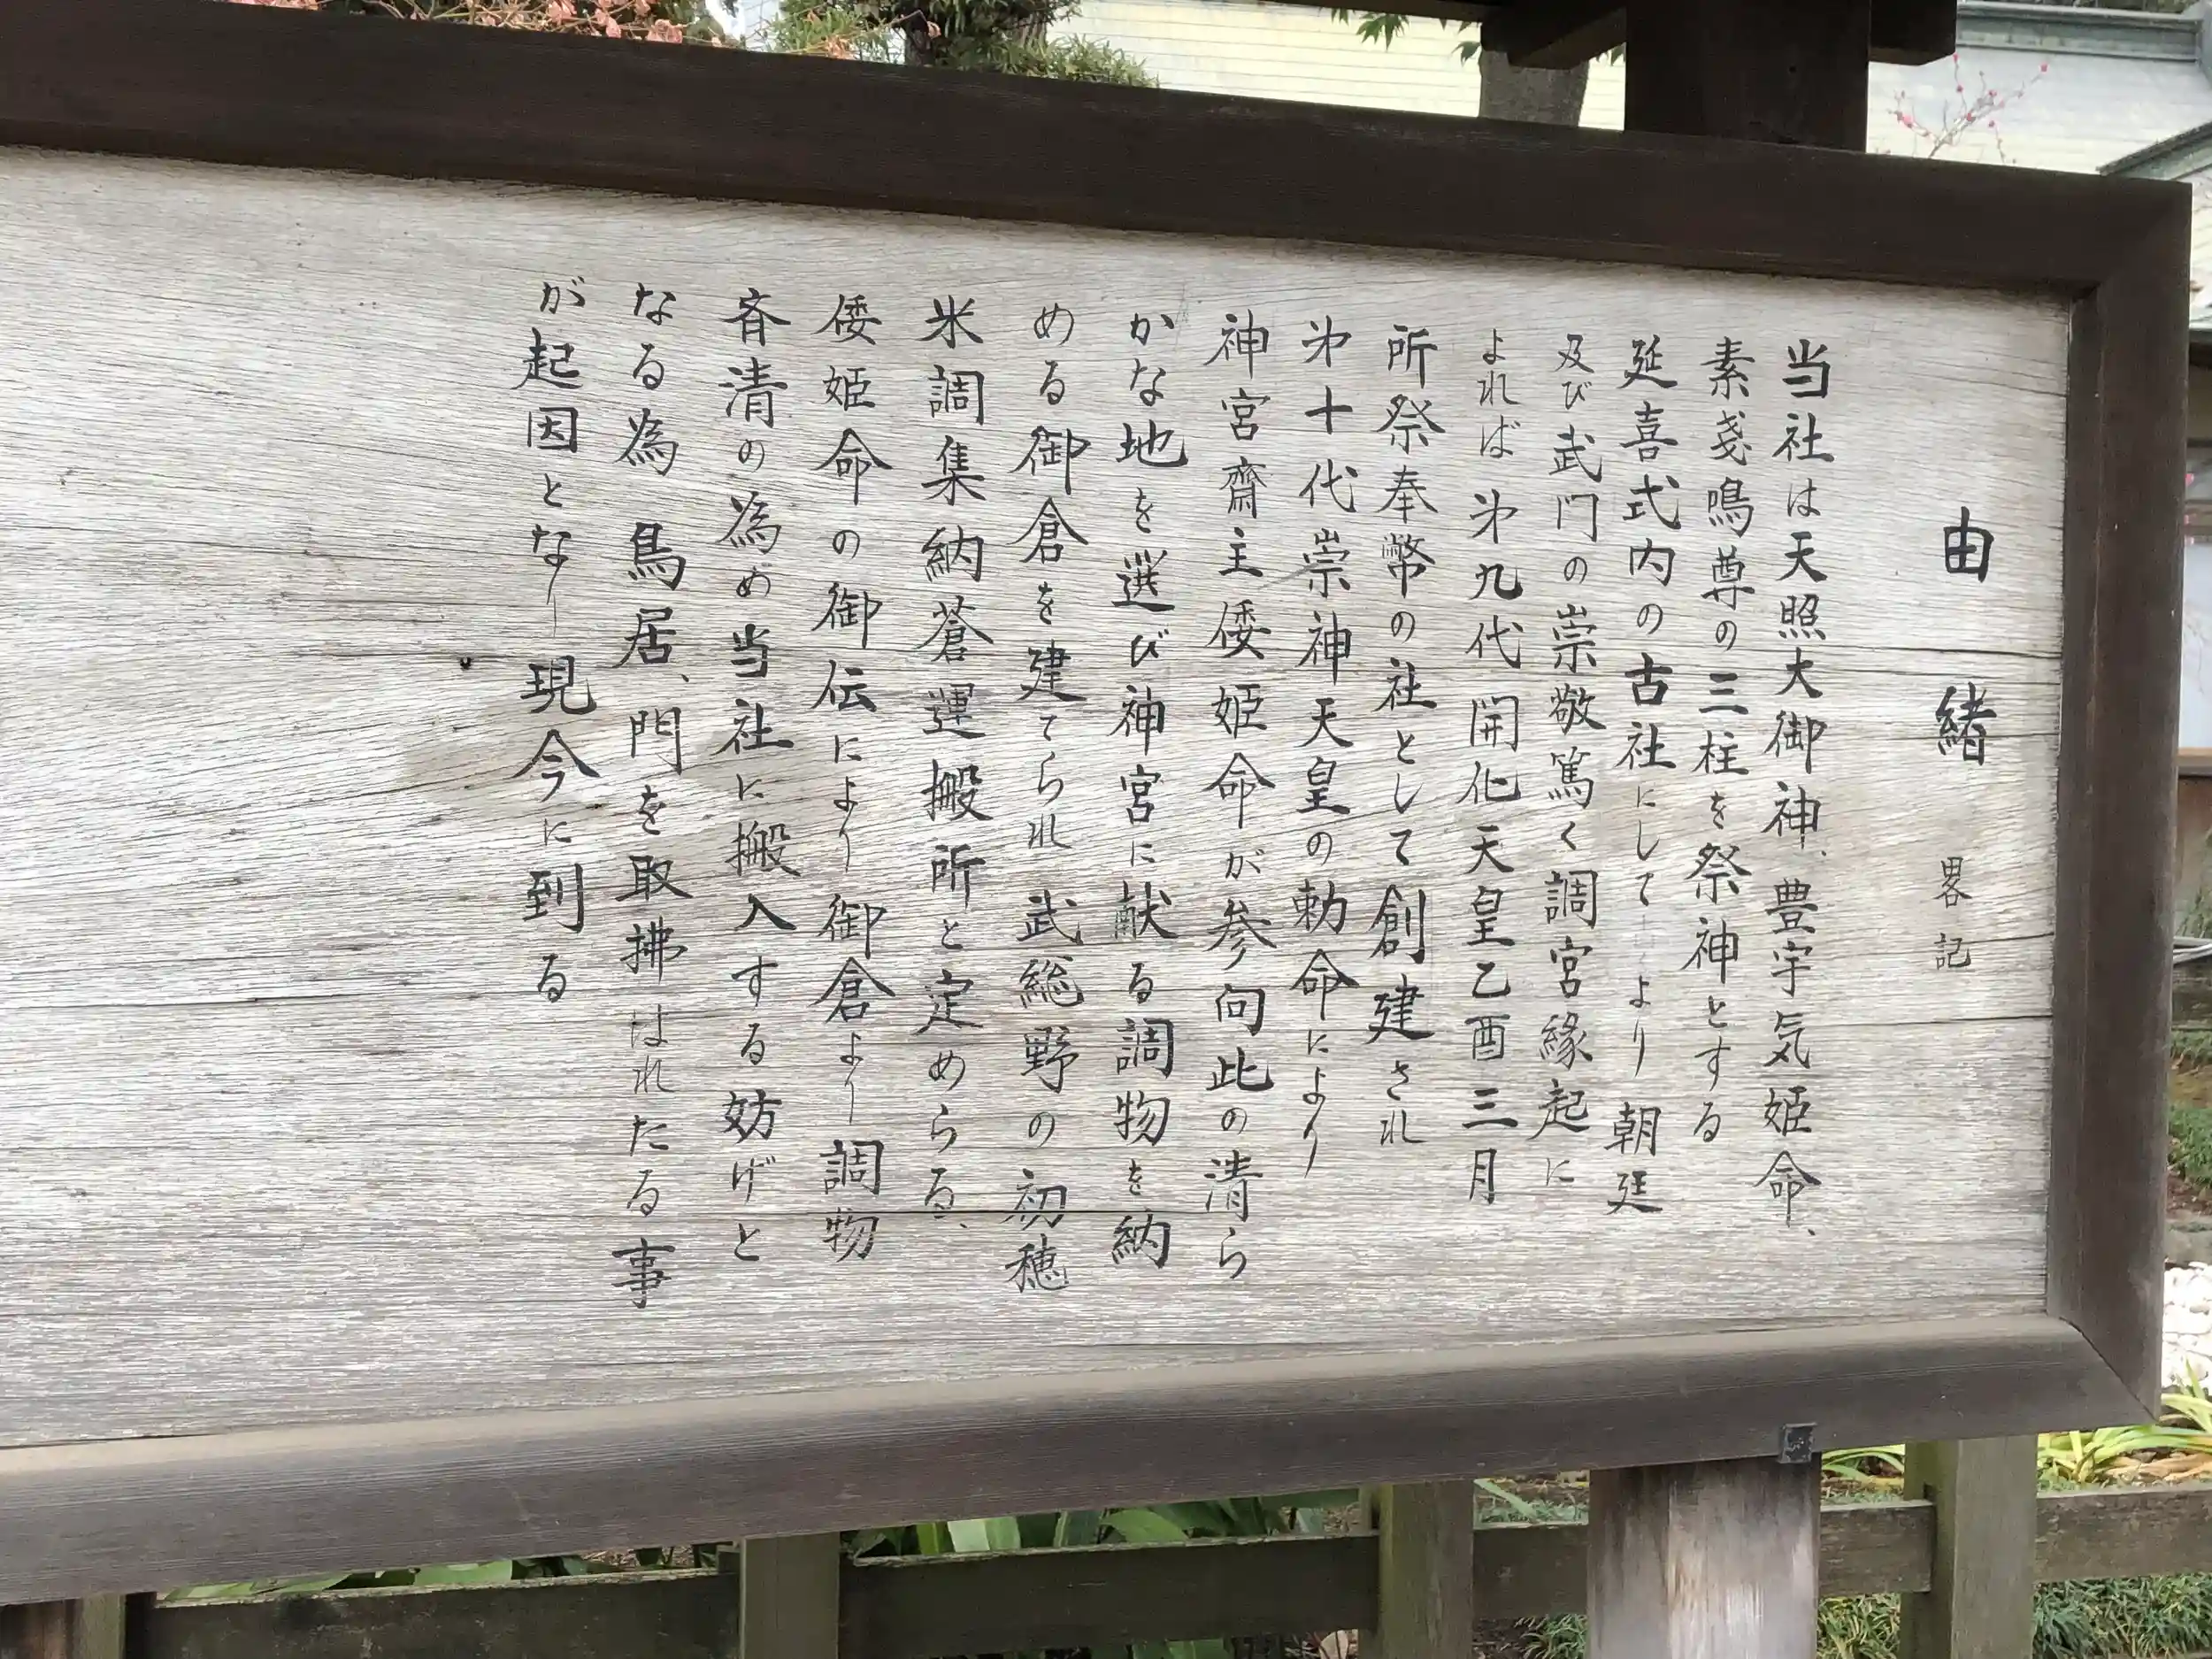 由緒 畧記
当社は天照大御神、豊宇気姫命、
素戔嗚尊の三柱を祭神とする
延喜式内の古社にして古くより朝廷
及び武門の崇敬篤く調宮縁起に
よれば㐧九代開化天皇乙酉三月
所祭奉幣の社として創建され
㐧十代崇神天皇の勅命により
神宮齋主倭姫命が参向此の清ら
かな地を選び神宮に献る調物を納
める御倉を建てられ武総野の初穂
米調集納蒼運搬所と定めらる、
倭姫命の御伝により御倉より調物
斉清の為め当社に搬入する妨げと
なる為鳥居、門を取拂はれたる事
が起因となり現今に到る